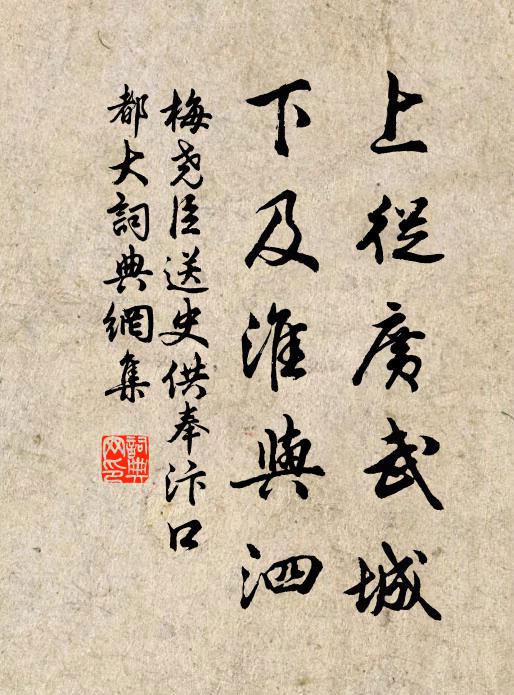 上從廣武城
下及淮與泗
梅堯臣送史供奉汴口
都大詞典網集
詞典網印